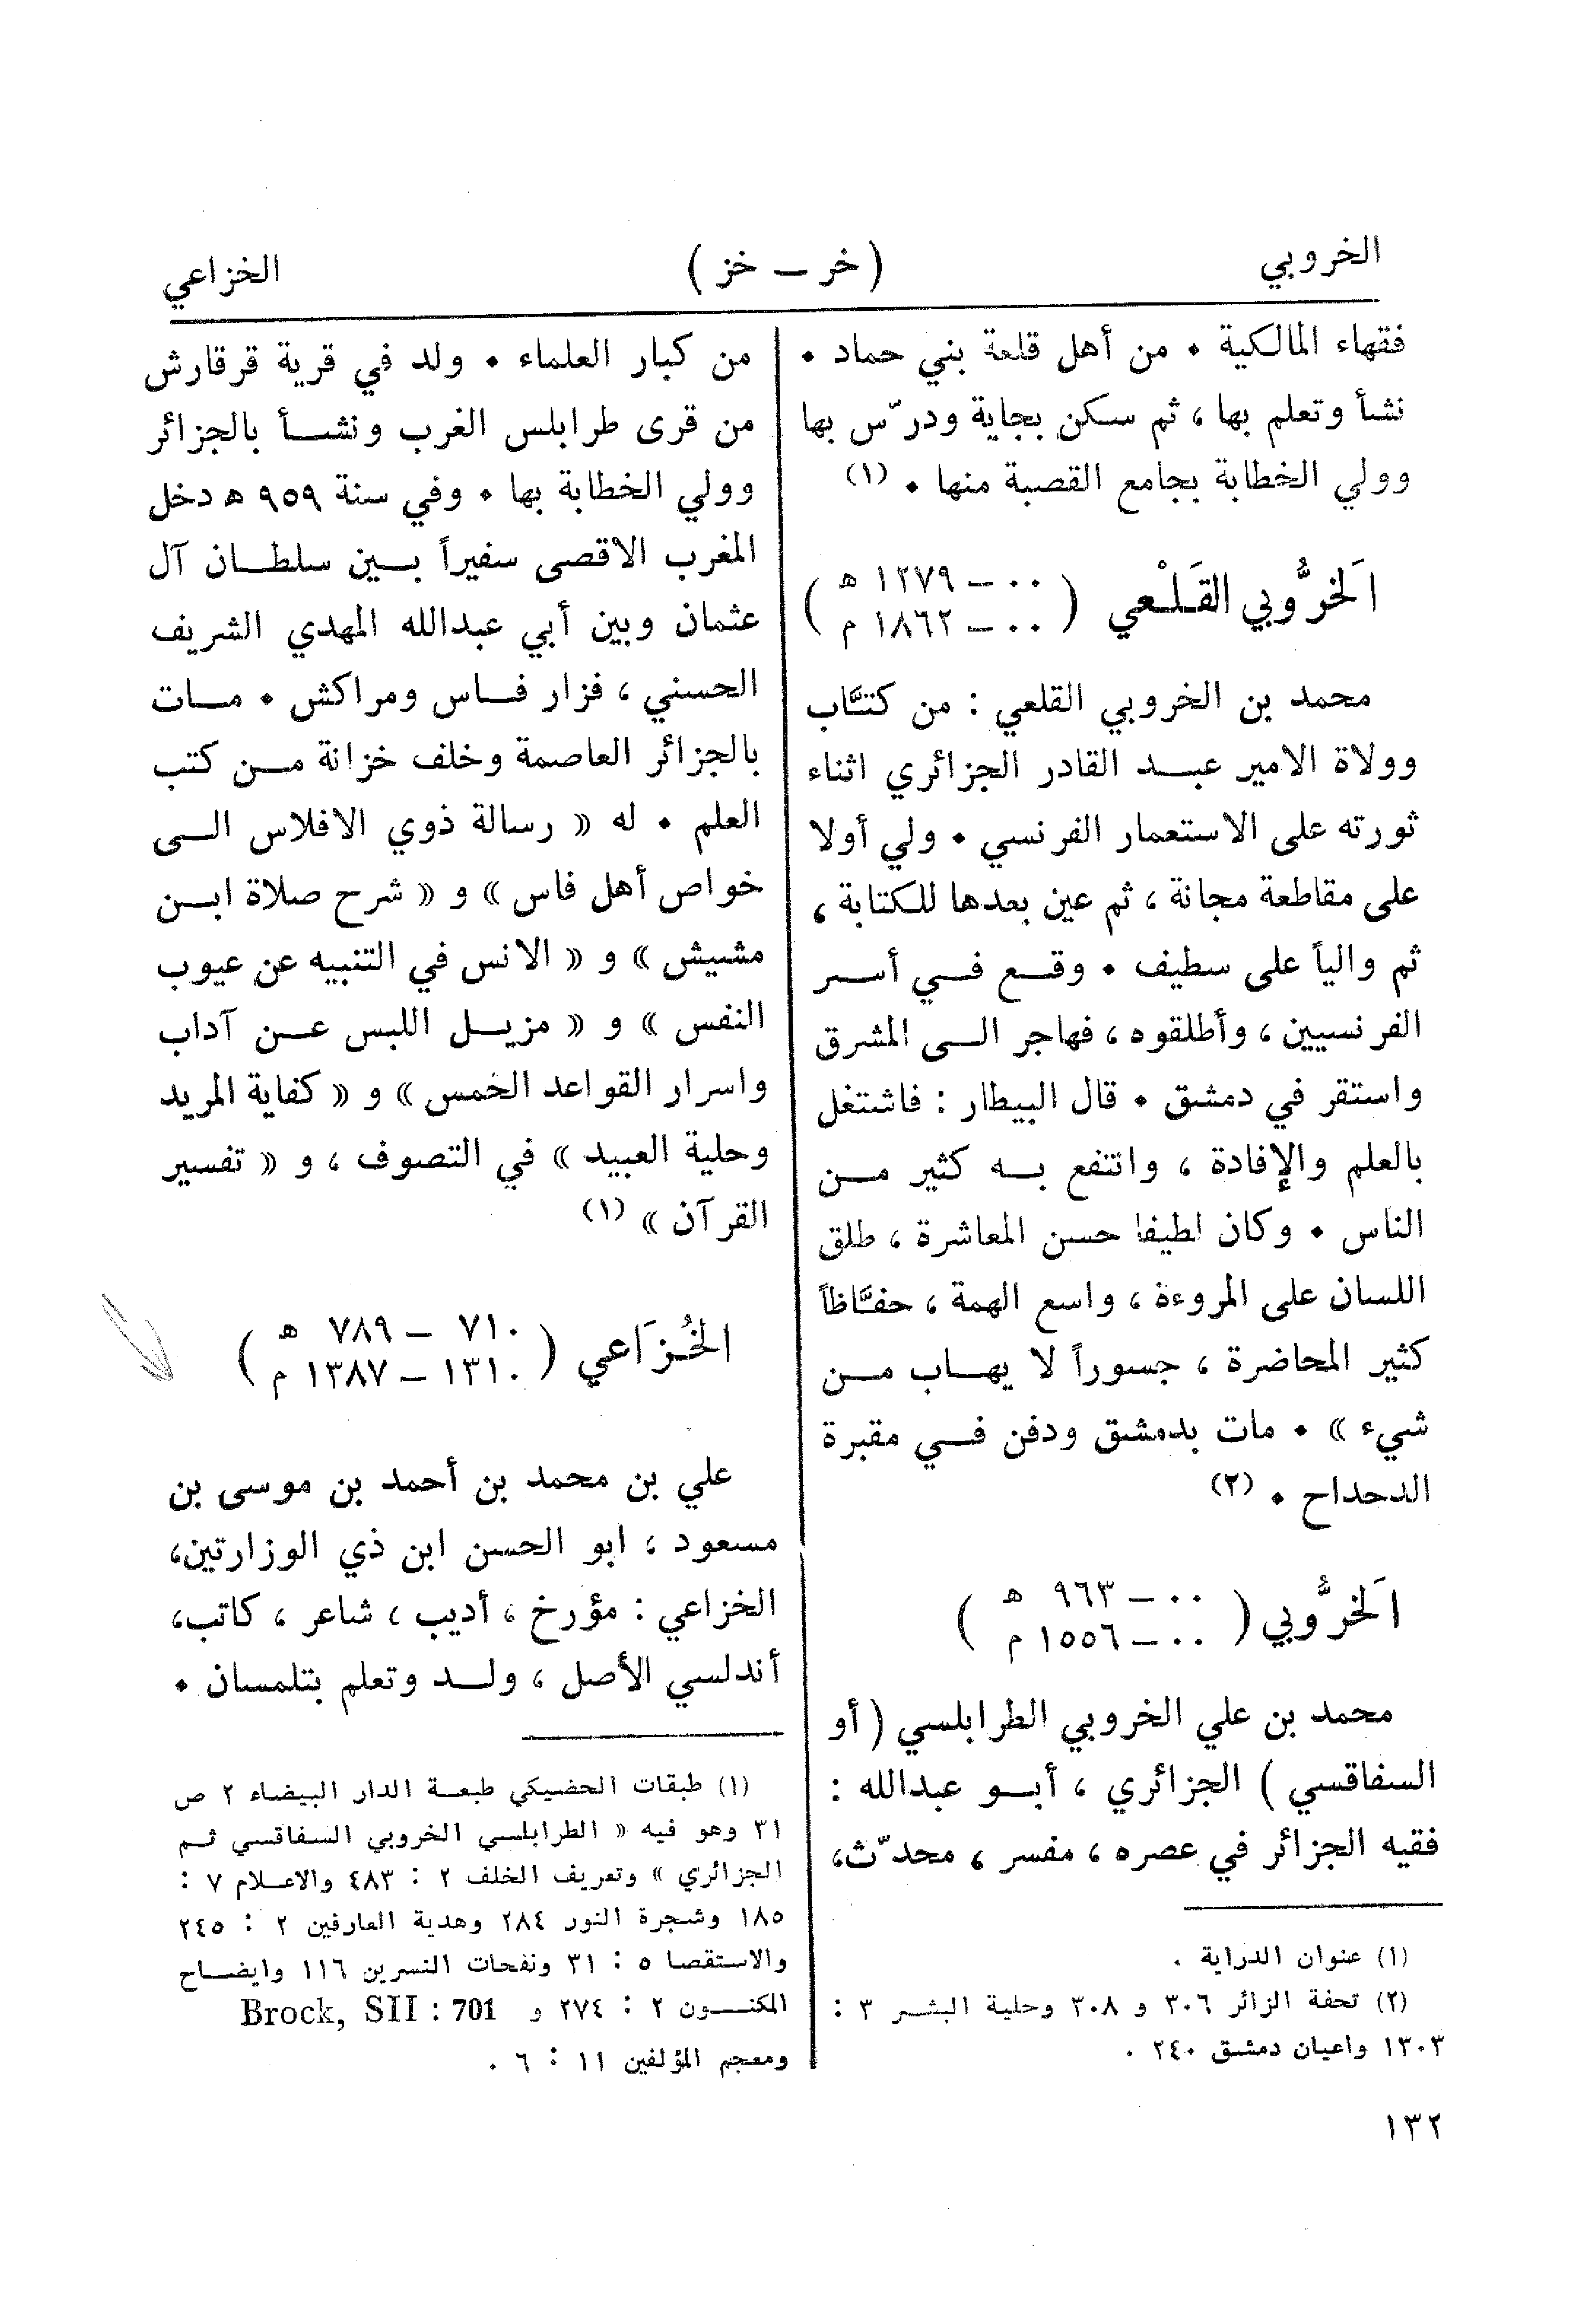 الخروبي
(خر ــ خز)
الخزاعي
فقهاء المالكية ٠ من أهل قلعة بني حماد ٠
نشأ وتعلم بها ، ثم سكن بجاية ودرّس بها
وولي الخطابة بجامع القصبة منها ٠ (١)
اَلخرُّوبي القَلْعي ( ٠٠ ــ ١٢٧٩ هـ
٠٠ ــ ١٨٦٢ م )
محمد بن الخروبي القلعي : من كتَّاب
وولاة الامير عبد القادر الجزائري اثناء
ثورته على الاستعمار الفرنسي ٠ ولي أولا
على مقاطعة مجانة ، ثم عين بعدها للكتابة ،
ثم والياً على سطيف ٠ وقع في أسر
الفرنسيين ، وأطلقوه ، فهاجر الى المشرق
واستقر في دمشق ٠ قال البيطار : فاشتغل
بالعلم والإفادة ، وانتفع به كثير من
الناس ٠ وكان لطيفا حسن المعاشرة ، طلق
اللسان على المروءة ، واسع الهمة ، حفَّاظاً
كثير المحاضرة ، جسوراً لا يهاب من
شيء » ٠ مات بدمشق ودفن في مقبرة
الدحداح ٠ (٢)
اَلخرُّوبي ( ٠٠ ــ ٩٦٣ هـ
٠٠ ــ ١٥٥٦ م )
محمد بن علي الخروبي الطرابلسي ( أو
السفاقسي ) الجزائري ، أبو عبدالله :
فقيه الجزائر في عصره ، مفسر ، محدّث،
(١) عنوان الدراية .
(٢) تحفة الزائر ٣٠٦ و ٣٠٨ وحلية البشر ٣ :
١٣٠٣ واعيان دمشق ٢٤٠ .
من كبار العلماء ٠ ولد في قرية قرقارش
من قرى طرابلس الغرب ونشأ بالجزائر
وولي الخطابة بها ٠ وفي سنة ٩٥٩ هـ دخل
المغرب الاقصى سفيراً بين سلطان آل
عثمان وبين أبي عبدالله المهدي الشريف
الحسني ، فزار فاس ومراكش ٠ مات
بالجزائر العاصمة وخلف خزانة من كتب
العلم ٠ له « رسالة ذوي الافلاس الى
خواص أهل فاس » و « شرح صلاة ابن
مشيش » و « الانس في التنبيه عن عيوب
النفس » و « مزيل اللبس عن آداب
واسرار القواعد الخمس » و « كفاية المريد
وحلية العبيد » في التصوف ، و « تفسير
القرآن » (١)
الخُزَاعي ( ٧١٠ ــ ٧٨٩ هـ
١٣١٠ ــ ١٣٨٧ م )
علي بن محمد بن أحمد بن موسى بن
مسعود ، ابو الحسن ابن ذي الوزارتين،
الخزاعي : مؤرخ ، أديب ، شاعر ، كاتب،
أندلسي الأصل ، ولد وتعلم بتلمسان ٠
(١) طبقات الحضيكي طبعة الدار البيضاء ٢ ص
٣١ وهو فيه « الطرابلسي الخروبي السفاقسي ثم
الجزائري » وتعريف الخلف ٢ : ٤٨٣ والاعلام ٧ :
١٨٥ وشجرة النور ٢٨٤ وهدية العارفين ٢ : ٢٤٥
والاستقصا ٥ : ٣١ ونفحات النسرين ١١٦ وايضاح
المكنون ٢ : ٢٧٤ و Brock, SII : 701
ومعجم المؤلفين ١١ : ٦ .
١٣٢